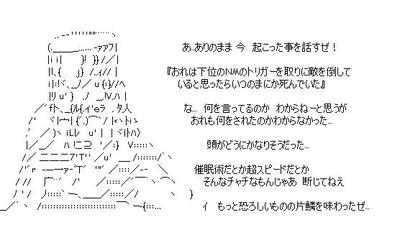 あ…ありのまま 今 起こった事を話すぜ！
『おれは下位のNMのトリガーを取りに敵を倒して
いると思ったらいつのまにか死んでいた』
な… 何を言ってるのか わからねーと思うが
おれも何をされたのかわからなかった…
頭がどうにかなりそうだった…
催眠術だとか超スピードだとか
そんなチャチなもんじゃあ 断じてねえ
もっと恐ろしいものの片鱗を味わったぜ…